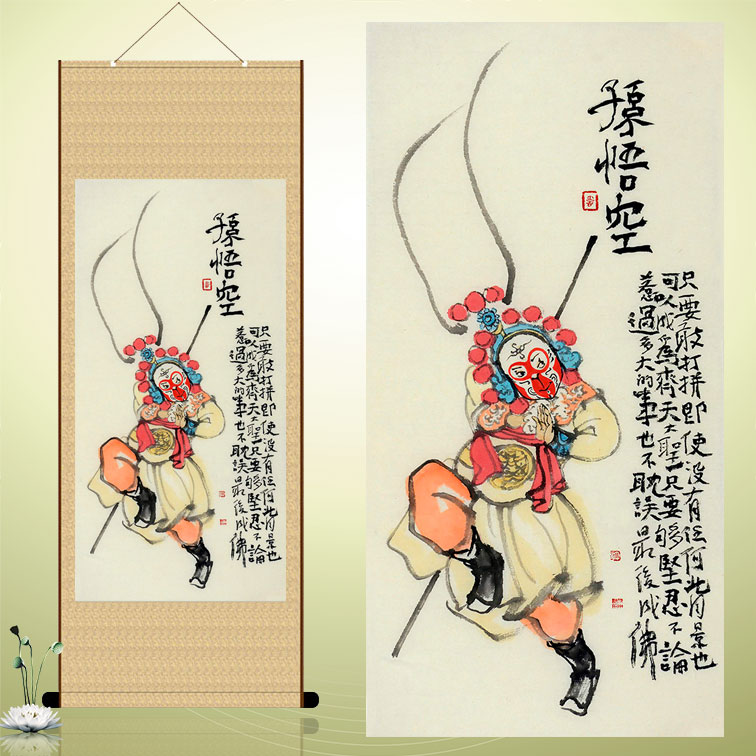 孫悟空
只要敢打拼即使没有任何背景也
可以成爲齊天大聖只要够堅忍不論
惹過多大的事也不耽誤最後成佛
孫悟空
只要敢打拼即使没有任何背景也
可以成爲齊天大聖只要够堅忍不論
惹過多大的事也不耽誤最後成佛